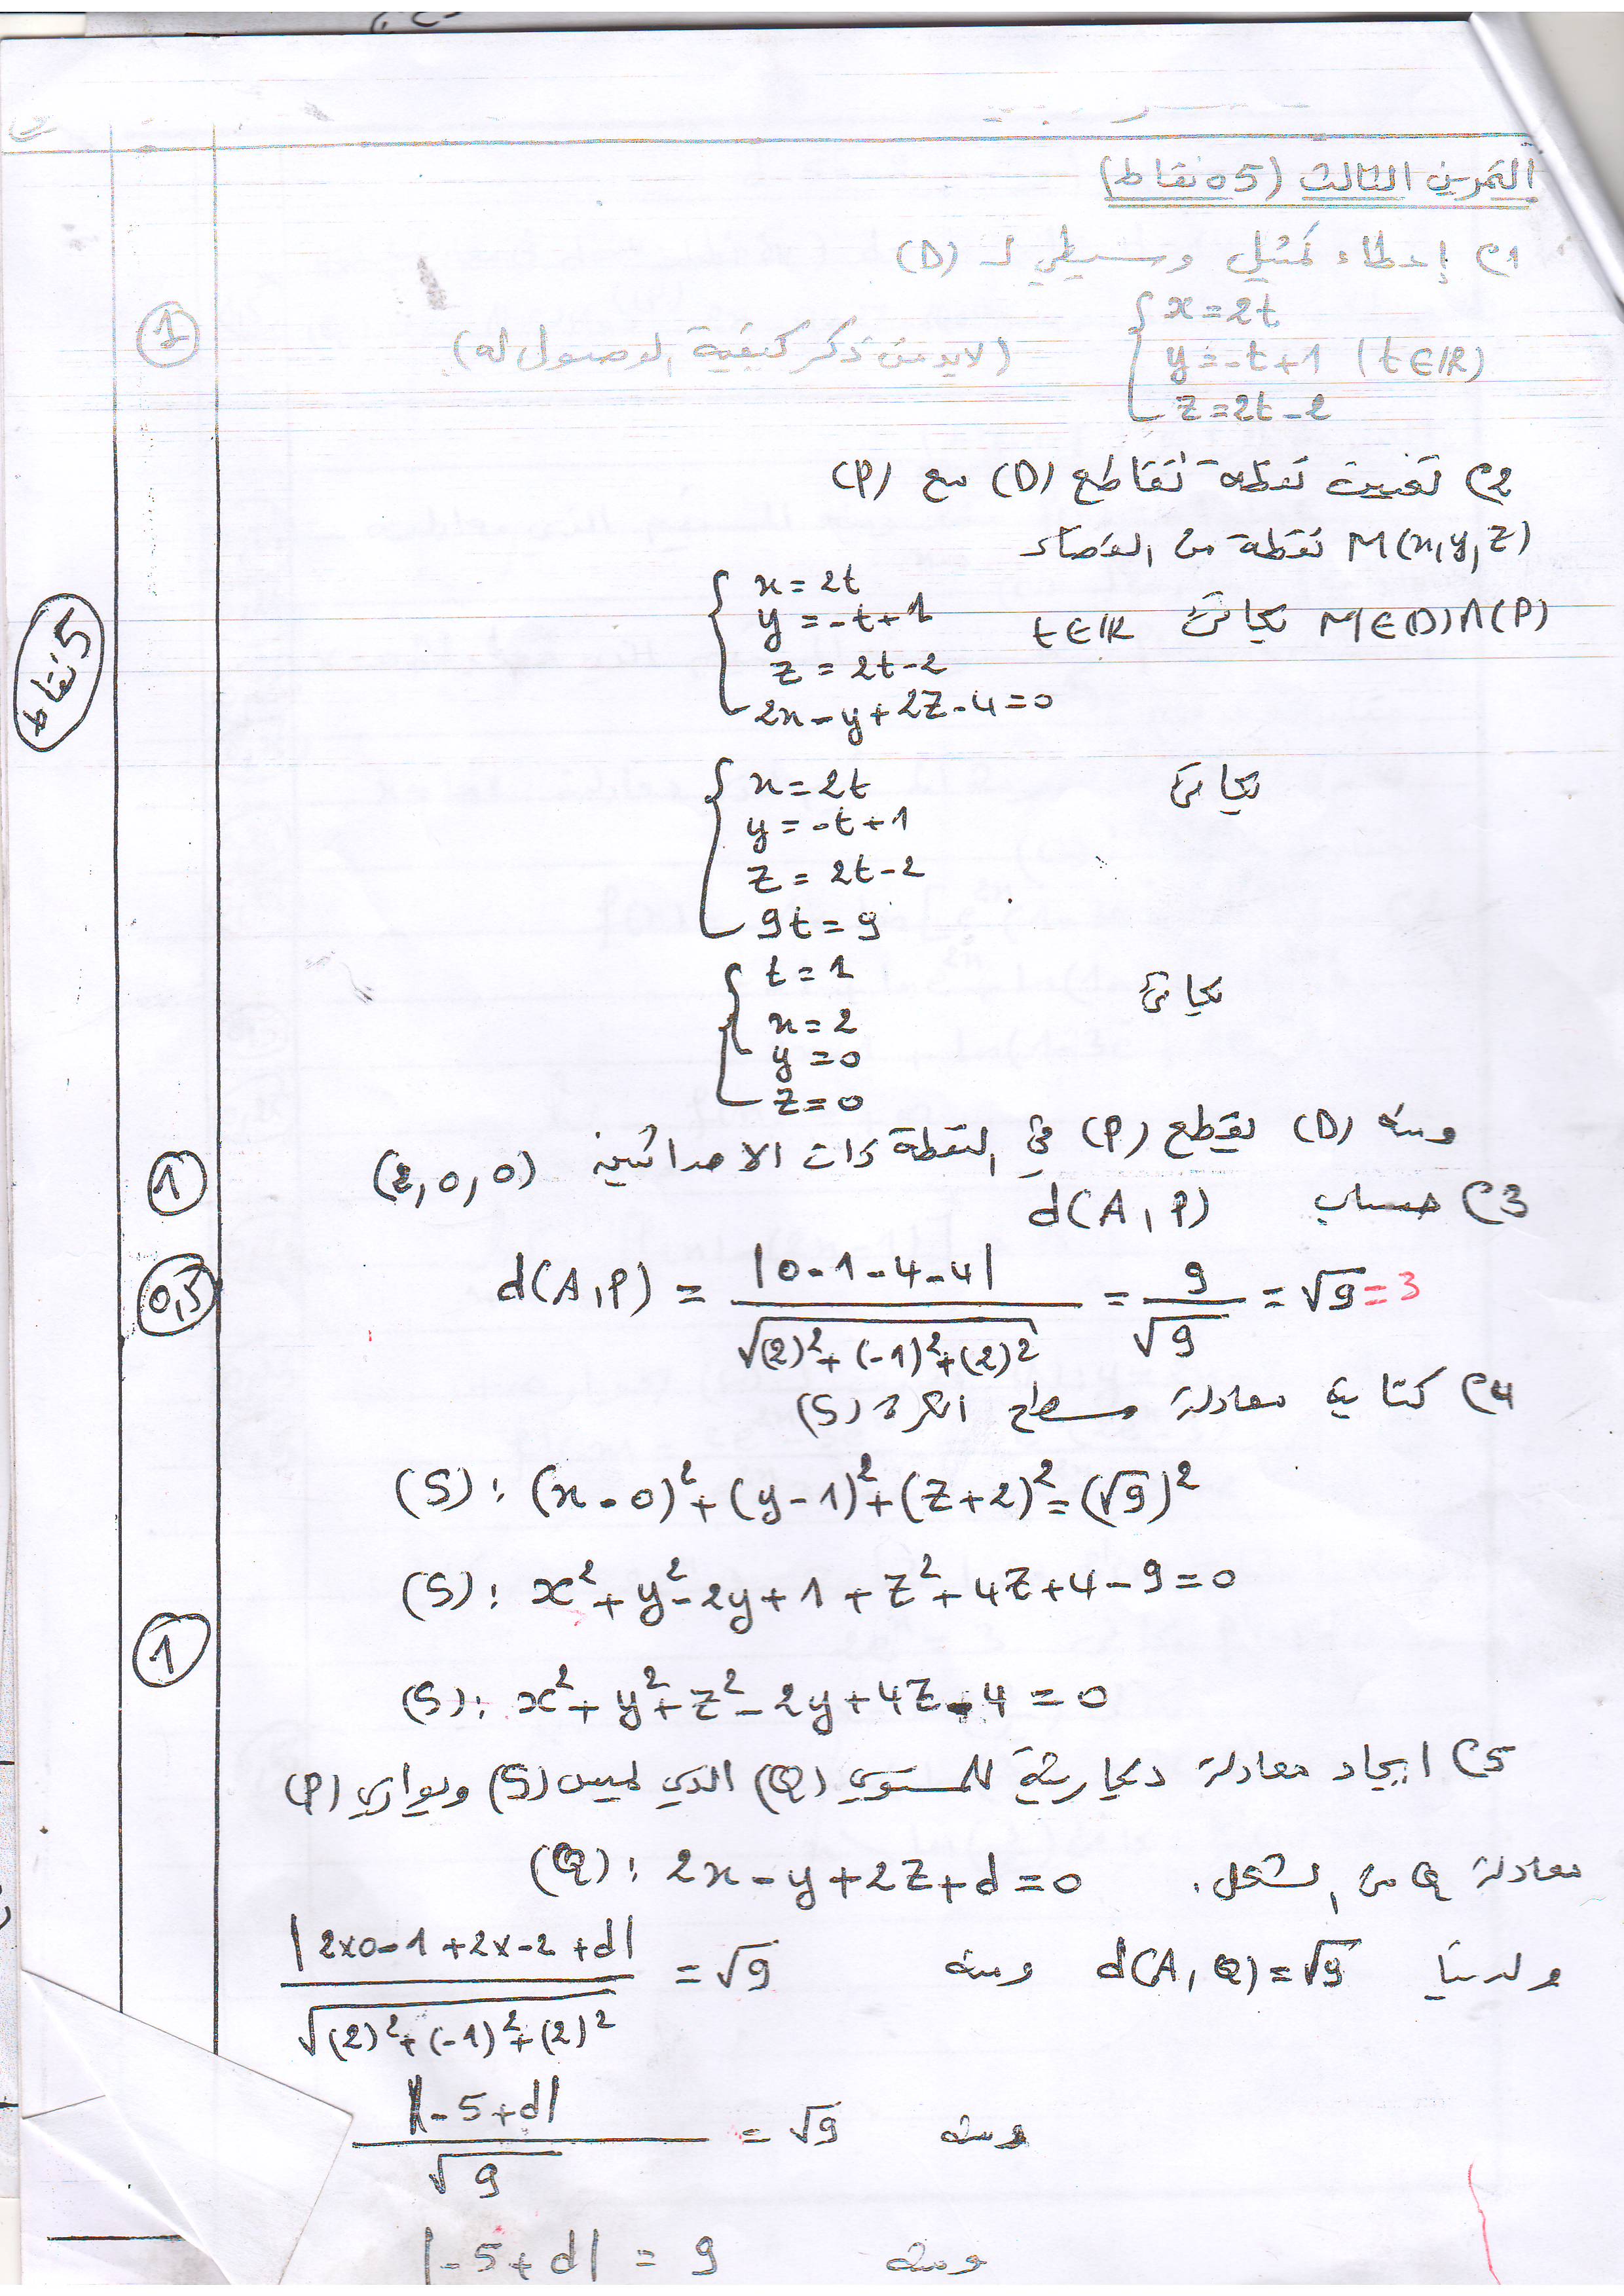 التمرين الثالث (05 نقاط)
1) إعطاء تمثيل وسيطي لـ (D)
{ x = 2t
y = -t+1 (t∈IR) (لابد من ذكر كيفية الوصول له) 1
z = 2t-2
2) تعيين نقطة تقاطع (D) مع (P)
M(x,y,z) نقطة من الفضاء
M∈(D)∩(P) يكافئ t∈IR
{ x = 2t
y = -t+1
z = 2t-2
2x-y+2z-4=0
5 نقاط
يكافئ
{ x = 2t
y = -t+1
z = 2t-2
9t = 9
يكافئ
{ t = 1
x = 2
y = 0
z = 0
ومنه (D) يقطع (P) في النقطة ذات الاحداثيين (2,0,0) 1
3) حساب d(A,P)
d(A,P) = |0-1-4-4| / √((2)²+(-1)²+(2)²) = 9/√9 = √9 = 3 0,5
4) كتابة معادلة سطح الكرة (S)
(S): (x-0)²+(y-1)²+(z+2)²=(√9)²
(S): x²+y²-2y+1+z²+4z+4-9=0
1
(S): x²+y²+z²-2y+4z-4=0
5) ايجاد معادلة ديكارتية للمستوي (Q) الذي يمس (S) ويوازي (P)
معادلة Q من الشكل: (Q): 2x-y+2z+d=0
ولدينا d(A,Q)=√9 ومنه |2x0-1+2x-2+d| / √((2)²+(-1)²+(2)²) = √9
ومنه |-5+d| / √9 = √9
ومنه |-5+d| = 9